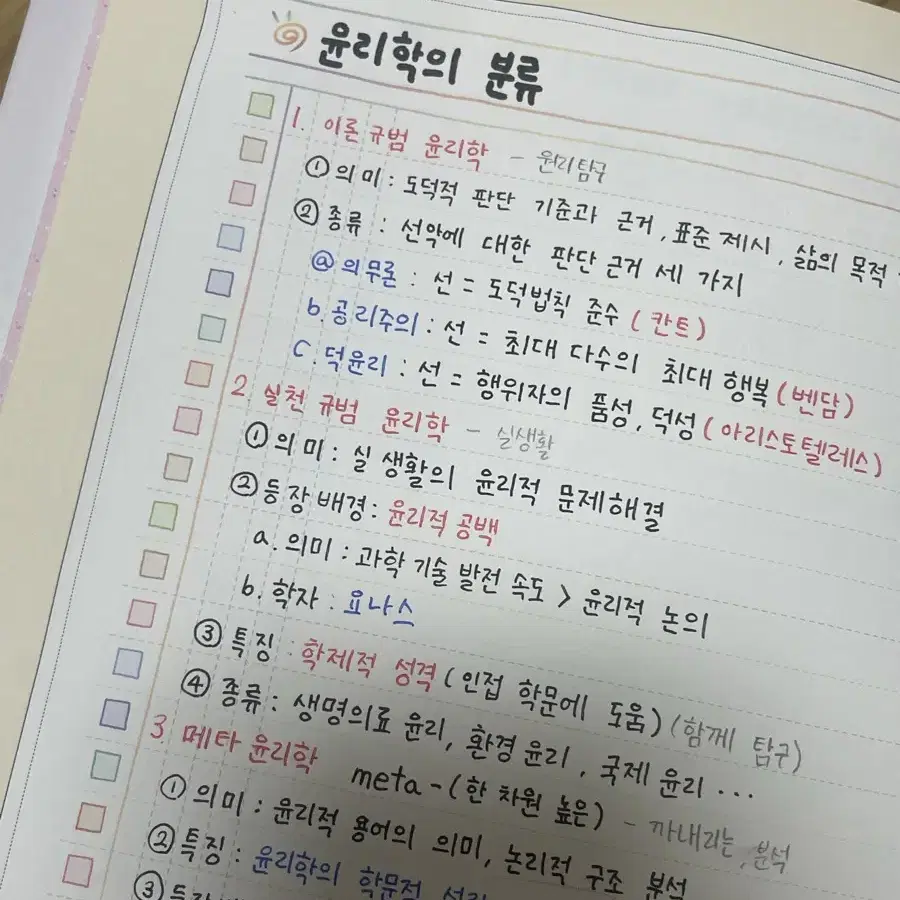 윤리학의 분류
1. 이론 규범 윤리학 - 원리탐구
① 의미 : 도덕적 판단 기준과 근거, 표준 제시, 삶의 목적
② 종류 : 선악에 대한 판단 근거 세 가지
ⓐ 의무론 : 선 = 도덕법칙 준수 (칸트)
b. 공리주의 : 선 = 최대 다수의 최대 행복 (벤담)
c. 덕윤리 : 선 = 행위자의 품성, 덕성 (아리스토텔레스)
2 실천 규범 윤리학 - 실생활
① 의미 : 실 생활의 윤리적 문제해결
② 등장배경 : 윤리적 공백
a. 의미 : 과학 기술 발전 속도 > 윤리적 논의
b. 학자 : 요나스
③ 특징 : 학제적 성격 (인접 학문에 도움) (함께 탐구)
④ 종류 : 생명의료 윤리, 환경 윤리, 국제 윤리 ...
3. 메타 윤리학 meta - (한 차원 높은) - 까내리는, 분석
① 의미 : 윤리적 용어의 의미, 논리적 구조 분석
② 특징 : 윤리학의 학문적
③